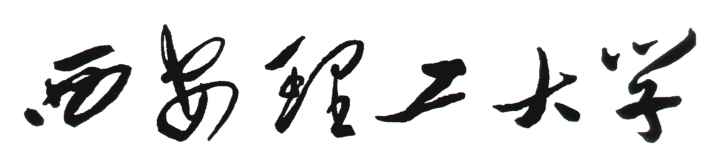 西安理工大学